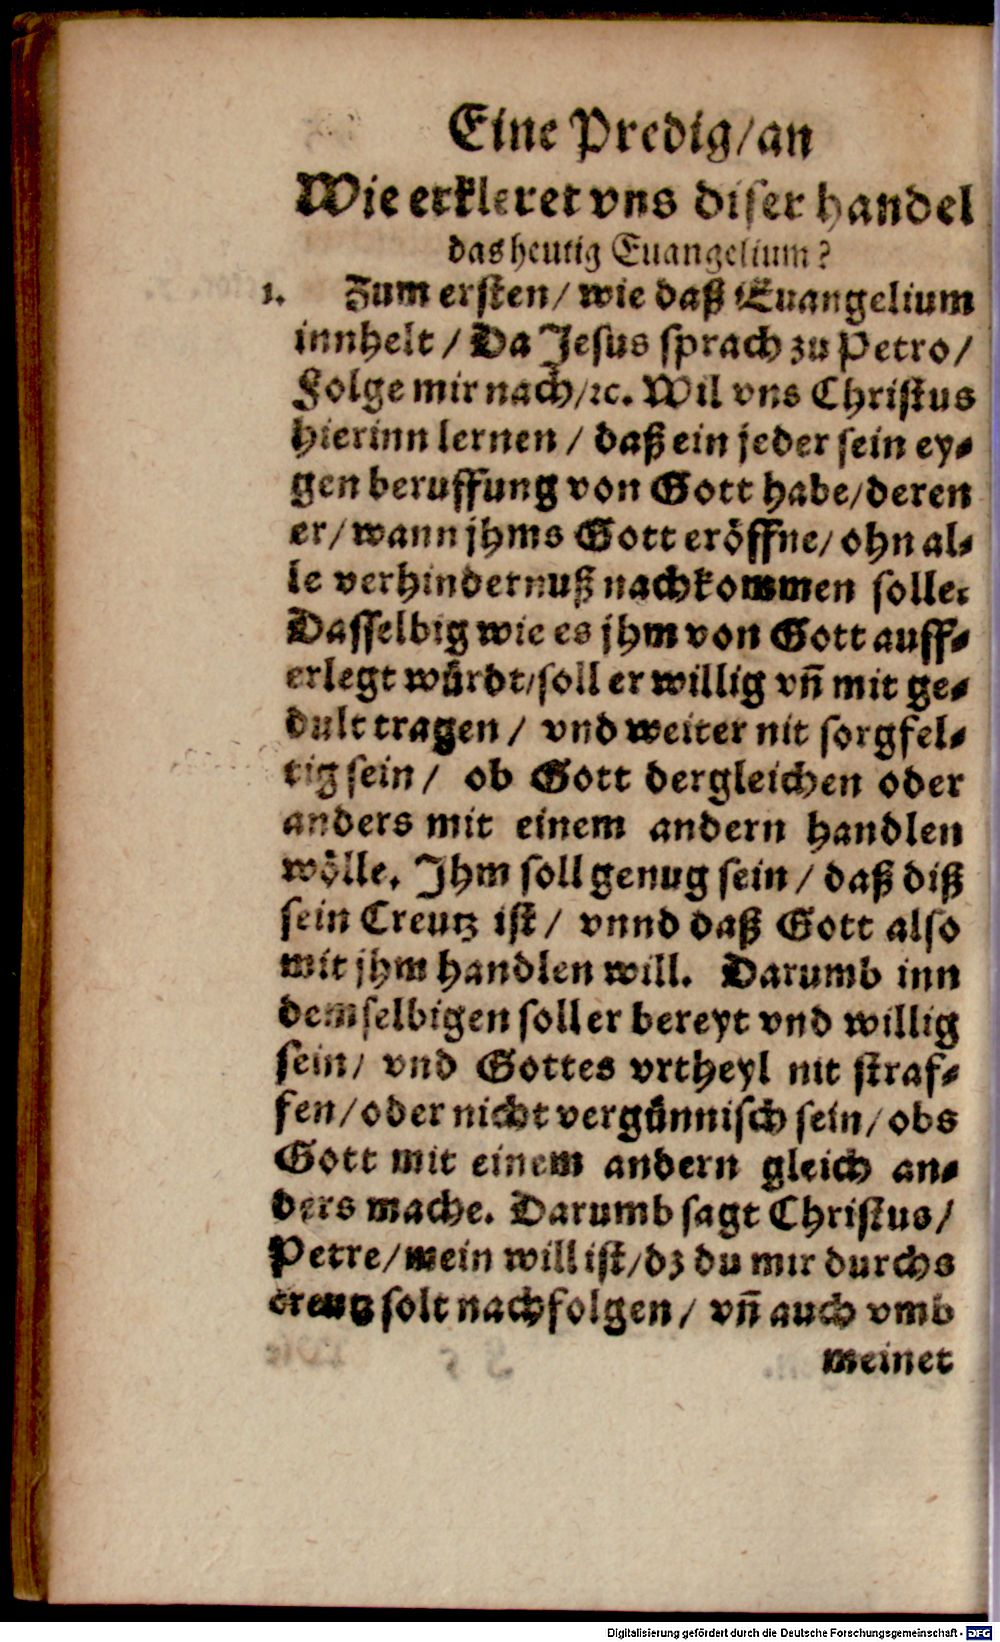 Eine Predig/an
Wie erkleret vns diser handel
das heutig Euangelium?
1. Zum ersten/ wie daß Euangelium
innhelt / Da Jesus sprach zu Petro/
Folge mir nach/ ꝛc. Wil vns Christus
hierinn lernen / daß ein jeder sein ey⸗
gen beruffung von Gott habe/deren
er/wann jhms Gott eröffne/ ohn al⸗
le verhindernuß nachkommen solle:
Dasselbig wie es jhm von Gott auff⸗
erlegt würdt/soll er willig vñ mit ge⸗
dult tragen / vnd weiter nit sorgfel⸗
tig sein/ ob Gott dergleichen oder
anders mit einem andern handlen
wölle. Ihm soll genug sein / daß diß
sein Creutz ist/ vnnd daß Gott also
mit jhm handlen will. Darumb inn
demselbigen soll er bereyt vnd willig
sein/ vnd Gottes vrtheyl nit straf⸗
fen/oder nicht vergünnisch sein/obs
Gott mit einem andern gleich an⸗
ders mache. Darumb sagt Christus/
Petre/mein will ist/dz du mir durchs
creutz solt nachfolgen/ vñ auch vmb
meinet
Digitalisierung gefördert durch die Deutsche Forschungsgemeinschaft - DFG